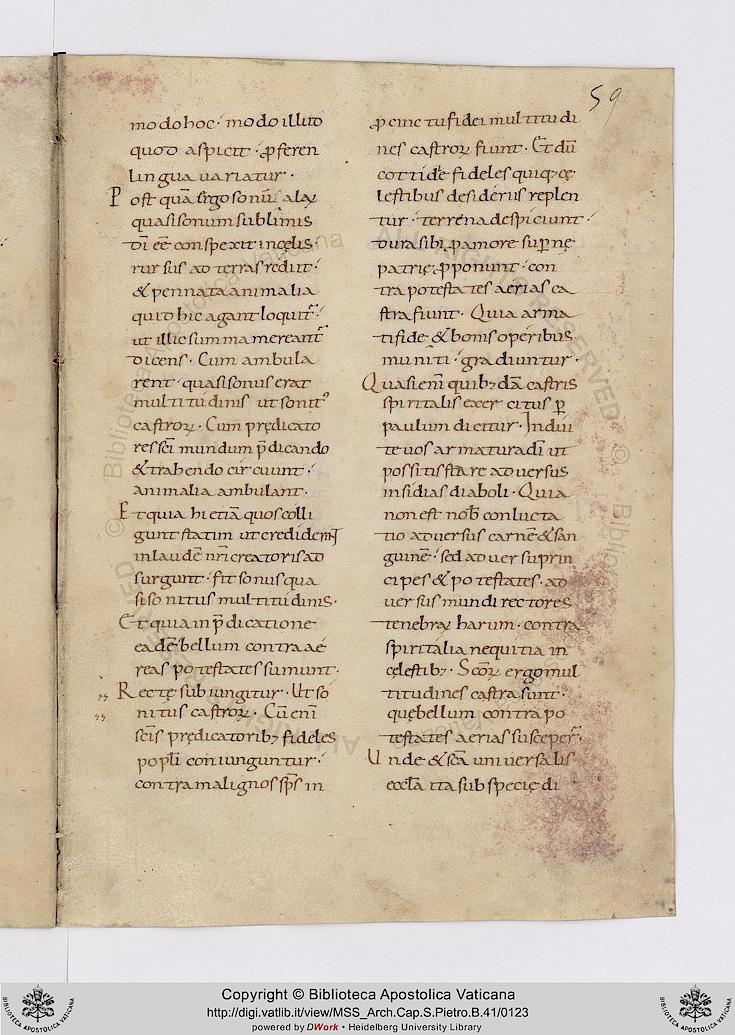 59
modo hoc · modo illud
quod aspicit · ꝓferen
lingua uariatur ·
Post quā ergo sonū · alaꝝ
quasi sonum sublimis
dī eē conspexit in cęlis ·
rursus ad terras rediit ·
& pennata animalia
quid hic agant loquit̄ ·
ut illic summa mereant̄
dicens · Cum ambula
rent · quasi sonus erat
multitudinis ut sonit᾿
castroꝝ · Cum prędicato
res sc̄i mundum p̄dicando
& trahendo circuunt ·
animalia ambulant ·
Et quia hi etiā quos colli
gunt statim ut crediderint
in laudē nr̄i creatoris ad
surgunt · fit sonus qua
si sonitus multitudinis ·
Et quia in p̄dicatione
eadē bellum contra aé
reas potestates sumunt ·
Recte subiungitur · Ut so
nitus castroꝝ · Cū enī
sc̄is prędicatorib; fideles
popl̄i coniunguntur ·
contra malignos sp̄s in
ꝓcinctu fidei multitudi
nes castroꝝ fiunt · Et dū
cottidie fideles quiq; cę
lestibus desideriis replen
tur · terrena despiciunt ·
dura sibi ꝓ amore sup̄nę
patrię ꝓponunt · con
tra potestates aerias ca
stra fiunt · Quia arma
ti fide & bonis operibus
muniti · gradiuntur ·
Quasi enī quib;dā castris
spiritalis exercitus ꝑ
paulum dicitur · Indui
te uos armatura dī ut
possitis stare aduersus
insidias diaboli · Quia
non est nob̄ conlucta
tio aduersus carnē & san
guinē · sed aduersus prin
cipes & potestates · ad
uersus mundi rectores
tenebraꝝ harum · contra
spiritalia nequitia in
cęlestib; · Sc̄oꝝ ergo mul
titudines castra sunt ·
quę bellum contra po
testates aerias susceper̄ ·
Unde & sc̄a uniuersalis
eccl̄a ita sub specię di
Copyright © Biblioteca Apostolica Vaticana
http://digi.vatlib.it/view/MSS_Arch.Cap.S.Pietro.B.41/0123
powered by DWork • Heidelberg University Library